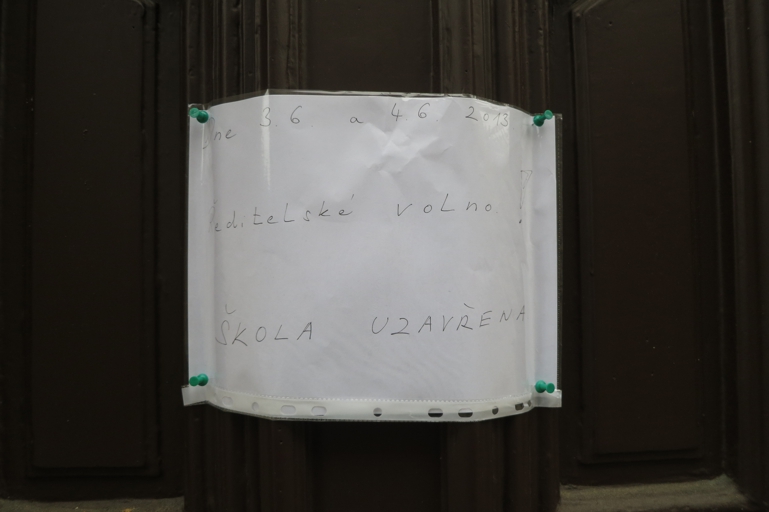 Dne 3.6 a 4.6. 2013
Ředitelské volno!
ŠKOLA UZAVŘENA